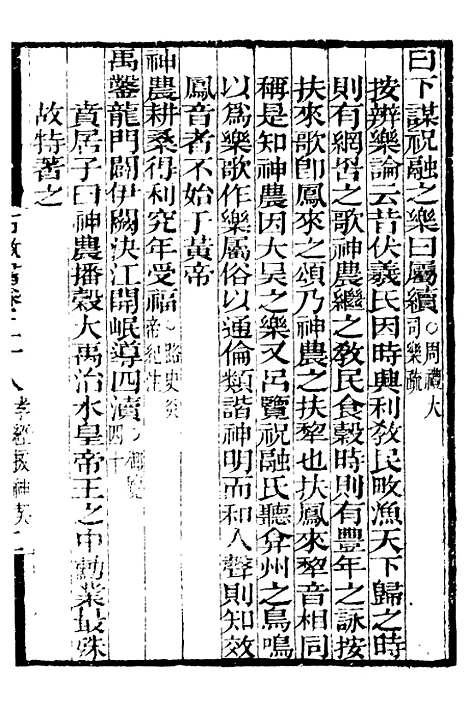 曰下謀祝融之樂曰屬續〇周禮大司樂疏
按辨樂論云昔伏羲氏因時興利敎民畋漁天下歸之時
則有網罟之歌神農繼之敎民食穀時則有豐年之詠按
扶來歌卽鳳來之頌乃神農之扶犂也扶鳳來犂音相同
稱是知神農因大昊之樂又呂覽祝融氏聽弇州之鳥鳴
以爲樂歌作樂屬俗以通倫類諧神明而和人聲則知效
鳳音者不始于黃帝
神農耕桑得利究年受福〇路史炎帝紀注
禹鑿龍門闢伊闕決江開岷導四瀆
賁居子曰神農播穀大禹治水皇帝王之中勳業最殊
故特著之
孝經援神契二